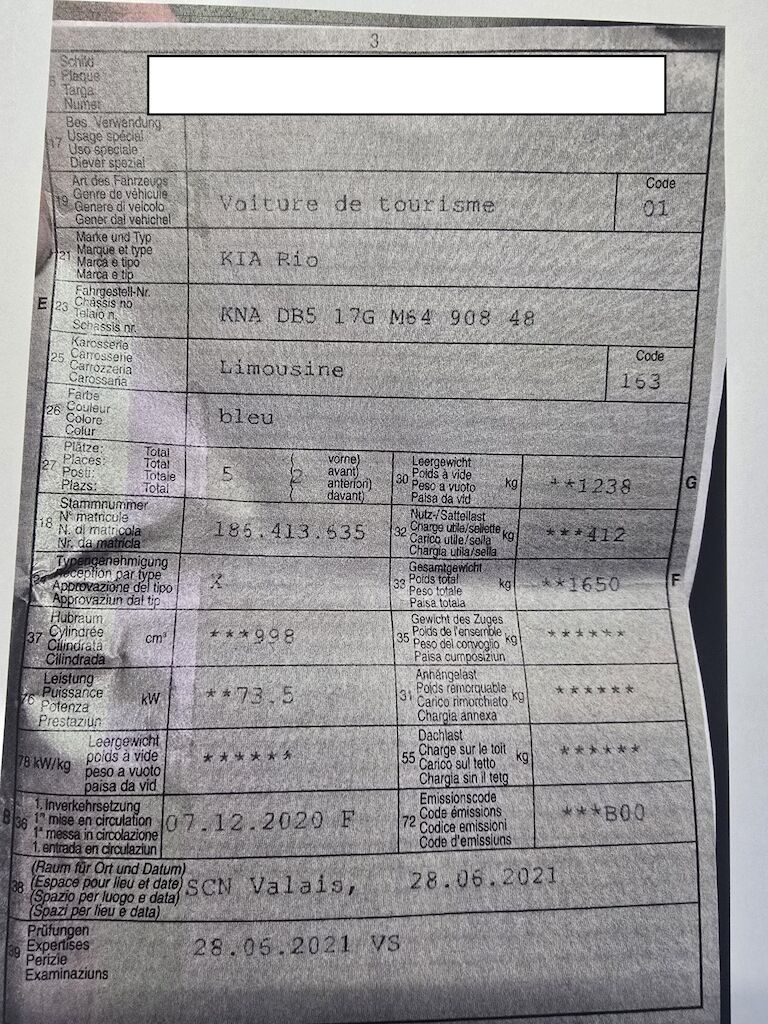 3
Schild
Plaque
Targa
Numer
17
Bes. Verwendung
Usage spécial
Uso speciale
Diever spezial
19
Art des Fahrzeugs
Genre de véhicule
Genere di veicolo
Gener dal vehichel
Voiture de tourisme
Code
01
21
Marke und Typ
Marque et type
Marca e tipo
Marca e tip
KIA Rio
E 23
Fahrgestell-Nr.
Châssis no
Telaio n.
Schassis nr.
KNA DB5 17G M64 908 48
25
Karosserie
Carrosserie
Carrozzeria
Carossaria
Limousine
Code
163
26
Farbe
Couleur
Colore
Colur
bleu
27
Plätze: Total
Places: Total
Posti: Totale
Plazs: Total
5 ( 2 vorne)
( avant)
( anteriori)
( davant)
30
Leergewicht
Poids à vide
Peso a vuoto kg
Paisa da vid
**1238
G
18
Stammnummer
N° matricule
N. di matricola
Nr. da matricla
186.413.635
32
Nutz-/Sattellast
Charge utile/sellette kg
Carico utile/sella
Chargia utila/sella
***412
Typengenehmigung
Réception par type
Approvazione del tipo
Approvaziun dal tip
X
33
Gesamtgewicht
Poids total kg
Peso totale
Paisa totala
**1650
F
37
Hubraum
Cylindrée cm³
Cilindrata
Cilindrada
***998
35
Gewicht des Zuges
Poids de l'ensemble kg
Peso del convoglio
Paisa cumposiziun
******
76
Leistung
Puissance kW
Potenza
Prestaziun
**73.5
31
Anhängelast
Poids remorquable kg
Carico rimorchiato
Chargia annexa
******
78 kW/kg
Leergewicht
poids à vide
peso a vuoto
paisa da vid
******
55
Dachlast
Charge sur le toit kg
Carico sul tetto
Chargia sin il tetg
******
B 36
1. Inverkehrsetzung
1re mise en circulation
1a messa in circolazione
1. entrada en circulaziun
07.12.2020 F
72
Emissionscode
Code émissions
Codice emissioni
Code d'emissiuns
***B00
38
(Raum für Ort und Datum)
(Espace pour lieu et date)
(Spazio per luogo e data)
(Spazi per lieu e data)
SCN Valais, 28.06.2021
39
Prüfungen
Expertises
Perizie
Examinaziuns
28.06.2021 VS